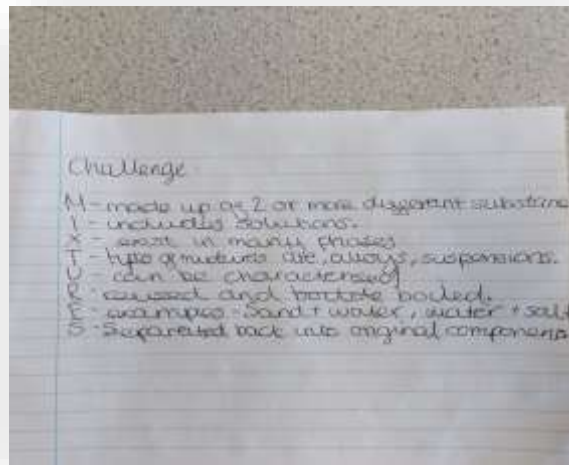 Challenge
M - made up of 2 or more different substance
I - includes solutions.
X - exist in many phases
T - type of mixtures are, alloys, suspensions.
U - can be characterised
R - and boiled.
E - examples - Sand + water, water + salt
S - Separated back into original components